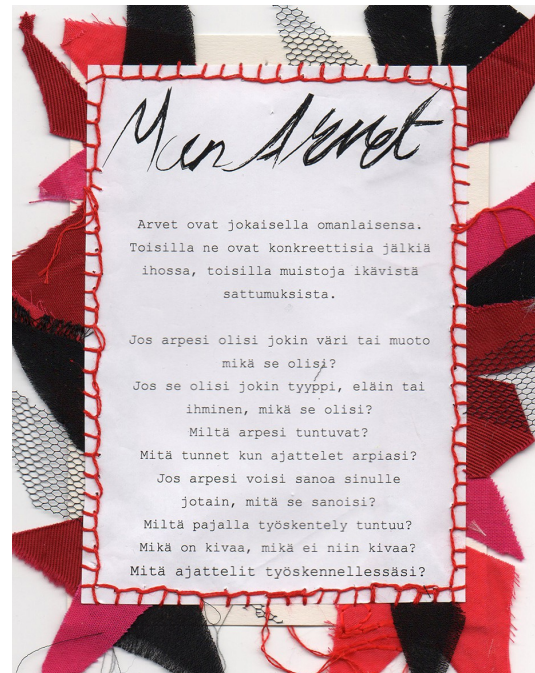 Mun Arvet
Arvet ovat jokaisella omanlaisensa.
Toisilla ne ovat konkreettisia jälkiä
ihossa, toisilla muistoja ikävistä
sattumuksista.
Jos arpesi olisi jokin väri tai muoto
mikä se olisi?
Jos se olisi jokin tyyppi, eläin tai
ihminen, mikä se olisi?
Miltä arpesi tuntuvat?
Mitä tunnet kun ajattelet arpiasi?
Jos arpesi voisi sanoa sinulle
jotain, mitä se sanoisi?
Miltä pajalla työskentely tuntuu?
Mikä on kivaa, mikä ei niin kivaa?
Mitä ajattelit työskennellessäsi?